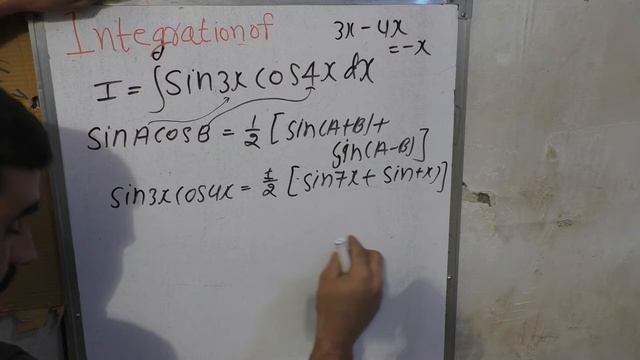 Integration of
3x - 4x
= -x
I = ∫ Sin3x cos4x dx
SinAcosB = 1/2 [sin(A+B)+
Sin(A-B)]
Sin3xcos4x = 1/2 [sin7x + sin(-x)]